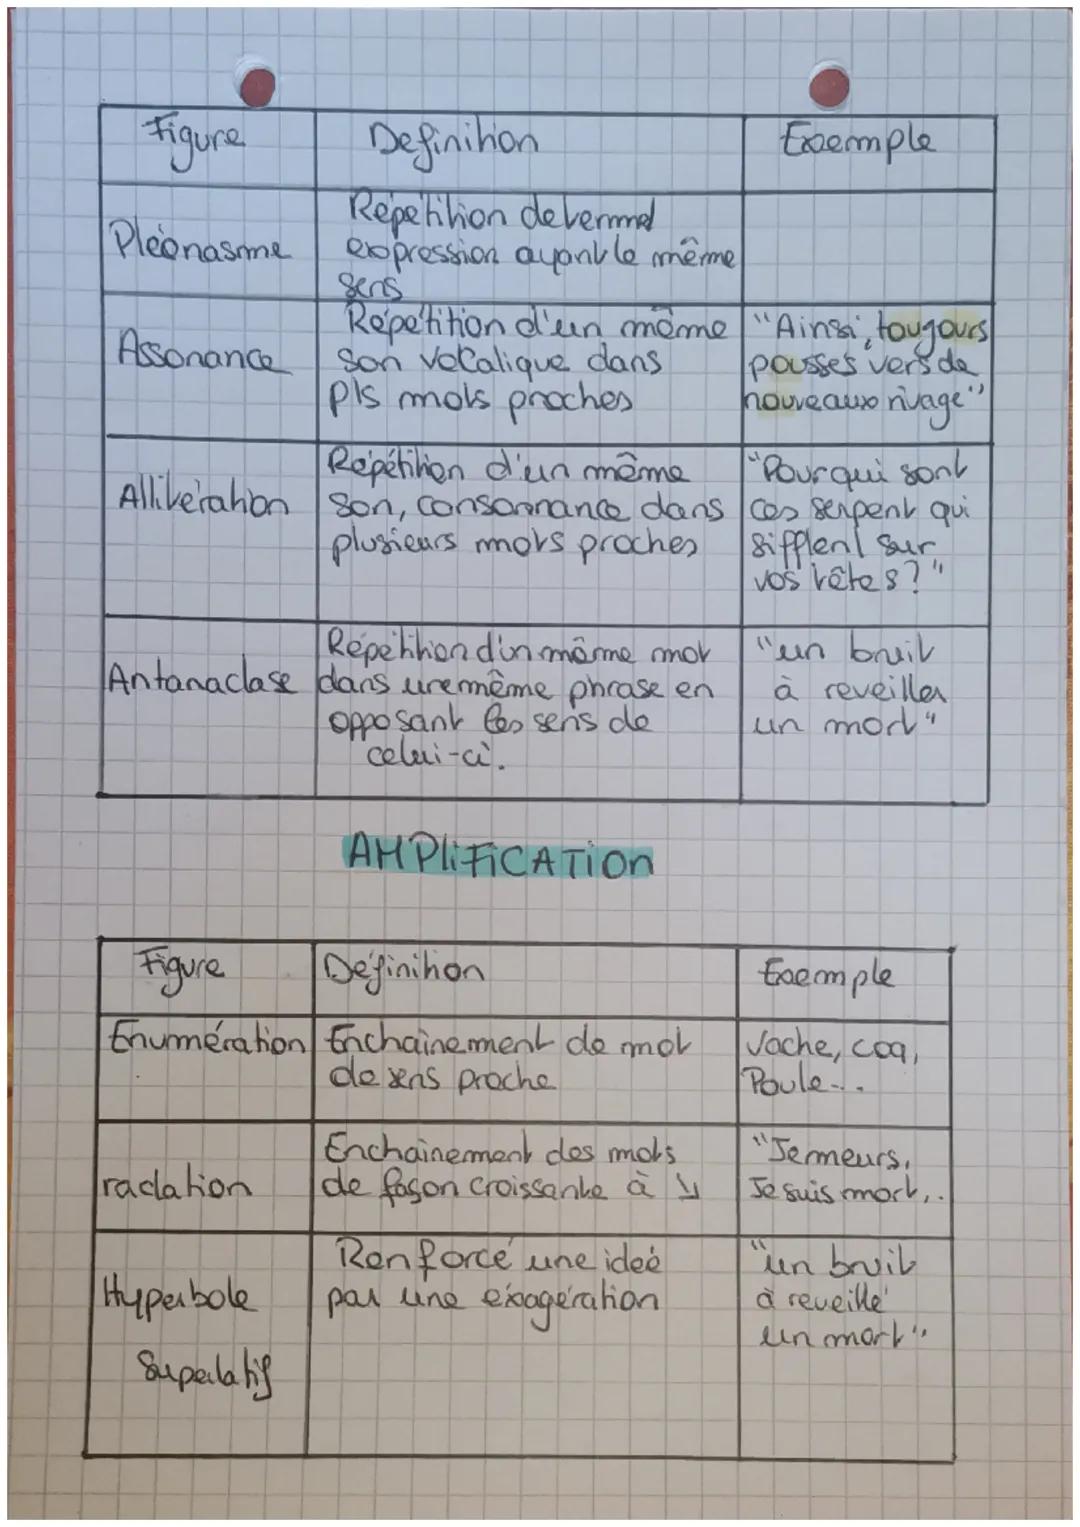 Figure
Definition
Exemple
Pléonasme
Répétition de termes
expression ayant le même
sens
Assonance
Répétition d'un même
son vocalique dans
Pls mots proches
"Ainsi, tougours
pousses vers de
nouveaux rivage"
Allitération
Répétition d'un même
son, consonnance dans
plusieurs mots proches
"Pour qui sont
ces serpent qui
sifflent sur
vos têtes?"
Antanaclase
Répétition d'un même mot
dans une même phrase en
opposant les sens de
celui-ci.
"un bruit
à reveiller
un mort"
AMPLiFiCATion
Figure
Définition
Exemple
Enumération
Enchainement de mot
de sens proche
Vache, coq,
Poule...
radation
Enchainement des mots
de façon croissante à ↘
"Je meurs,
Je suis mort,..
Hyperbole
Superlatif
Renforcé une ideé
par une éxagération
"un bruit
à reveillé
un mort".